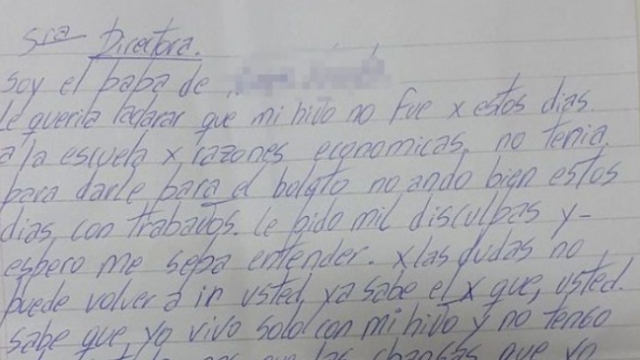 Sra Directora.
Soy el papa de
le queria aclarar que mi hijo no fue x estos dias
a la escuela x razones economicas, no tenia
para darle para el boleto no ando bien estos
dias, con trabajos. Le pido mil disculpas y-
espero me sepa entender. x las dudas no
puede volver a ir usted, ya sabe el x que, usted.
sabe que, yo vivo solo con mi hijo y no tengo
que las changas que yo